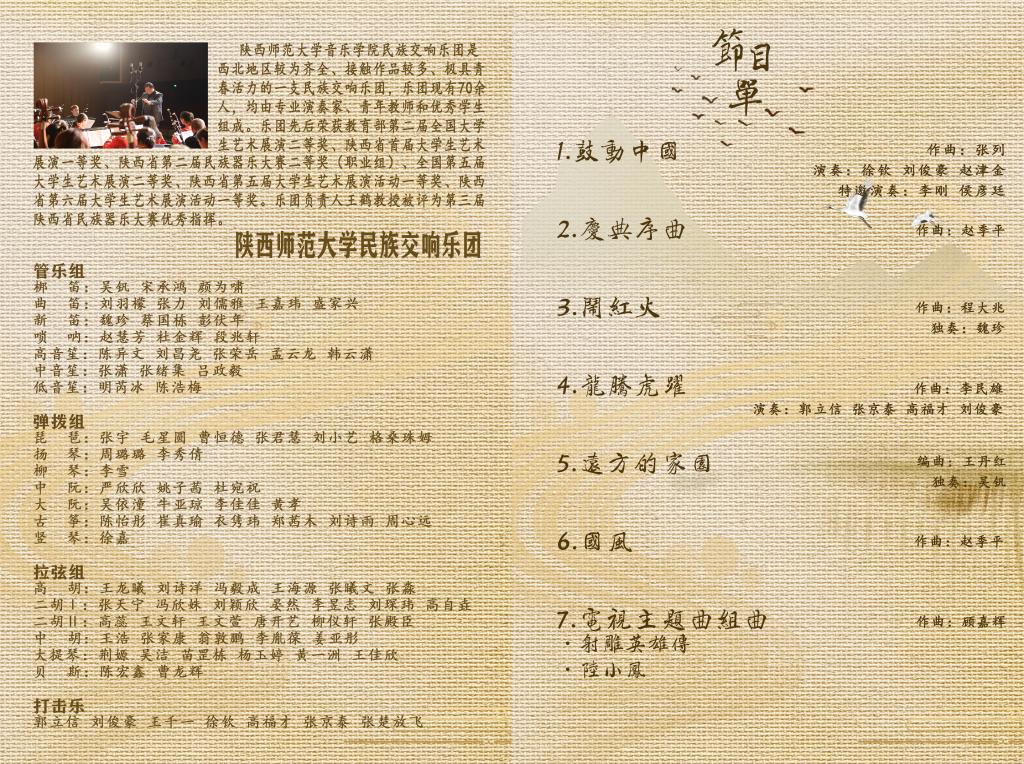 陕西师范大学音乐学院民族交响乐团是
西北地区较为齐全、接触作品较多、极具青
春活力的一支民族交响乐团，乐团现有70余
人，均由专业演奏家、青年教师和优秀学生
组成。乐团先后荣获教育部第二届全国大学
生艺术展演二等奖、陕西省首届大学生艺术
展演一等奖、陕西省第二届民族器乐大赛二等奖（职业组）、全国第五届
大学生艺术展演二等奖、陕西省第五届大学生艺术展演活动一等奖、陕西
省第六届大学生艺术展演活动一等奖。乐团负责人王鹤教授被评为第三届
陕西省民族器乐大赛优秀指挥。
陕西师范大学民族交响乐团
管乐组
梆 笛：吴钒 宋承鸿 颜为啸
曲 笛：刘羽檬 张力 刘儒雅 王嘉玮 盛家兴
新 笛：魏珍 蔡国栋 彭伏年
唢 呐：赵慧芳 杜金辉 段兆轩
高音笙：陈异文 刘昌尧 张荣岳 孟云龙 韩云潇
中音笙：张潇 张绪集 吕政毅
低音笙：明芮冰 陈浩梅
弹拨组
琵 琶：张宇 毛星圆 曹恒德 张君慧 刘小艺 格桑珠姆
扬 琴：周璐璐 李秀倩
柳 琴：李雪
中 阮：严欣欣 姚子茜 杜宛祝
大 阮：吴依潼 牛亚琼 李佳佳 黄孝
古 筝：陈怡彤 崔真瑜 衣隽玮 郑茜木 刘诗雨 周心远
竖 琴：徐嘉
拉弦组
高 胡：王龙曦 刘诗洋 冯毅成 王海源 张曦文 张淼
二胡Ⅰ：张天宁 冯欣姝 刘颖欣 晏然 李昱志 刘琛玮 高自垚
二胡Ⅱ：高蕊 王文轩 王文萱 唐开艺 柳仪轩 张殿臣
中 胡：王浩 张家康 翁敦鹏 李胤葆 姜亚彤
大提琴：荆嫄 吴洁 苗罡栋 杨玉婷 黄一洲 王佳欣
贝 斯：陈宏鑫 曹龙辉
打击乐
郭立信 刘俊豪 王千一 徐钦 高福才 张京泰 张楚放飞
節目
單
1.鼓動中國
作曲：张列
演奏：徐钦 刘俊豪 赵津金
特邀演奏：李刚 侯彦廷
2.慶典序曲
作曲：赵季平
3.鬧紅火
作曲：程大兆
独奏：魏珍
4.龍騰虎躍
作曲：李民雄
演奏：郭立信 张京泰 高福才 刘俊豪
5.遠方的家園
编曲：王丹红
独奏：吴钒
6.國風
作曲：赵季平
7.電視主題曲組曲
作曲：顾嘉辉
·射雕英雄傳
·陸小鳳